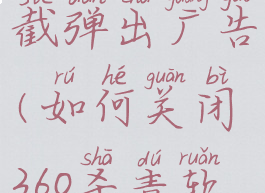 截弹出广告
rú hé guān bì
(如何关闭
shā dú ruǎn
360杀毒软